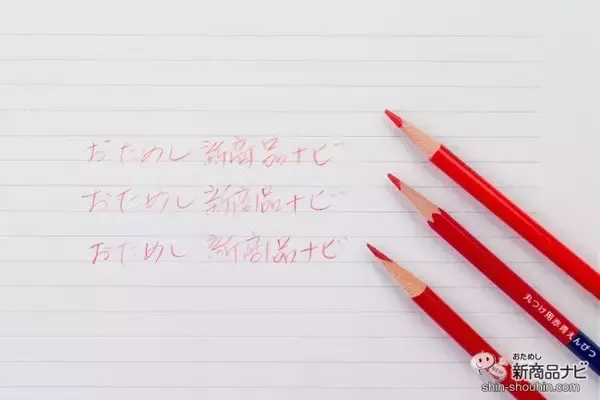 おためし 新商品ナビ
おためし 新商品ナビ
おためし 新商品ナビ
丸つけ用赤青えんぴつ
おためし
新商品ナビ
shin-shouhin.com